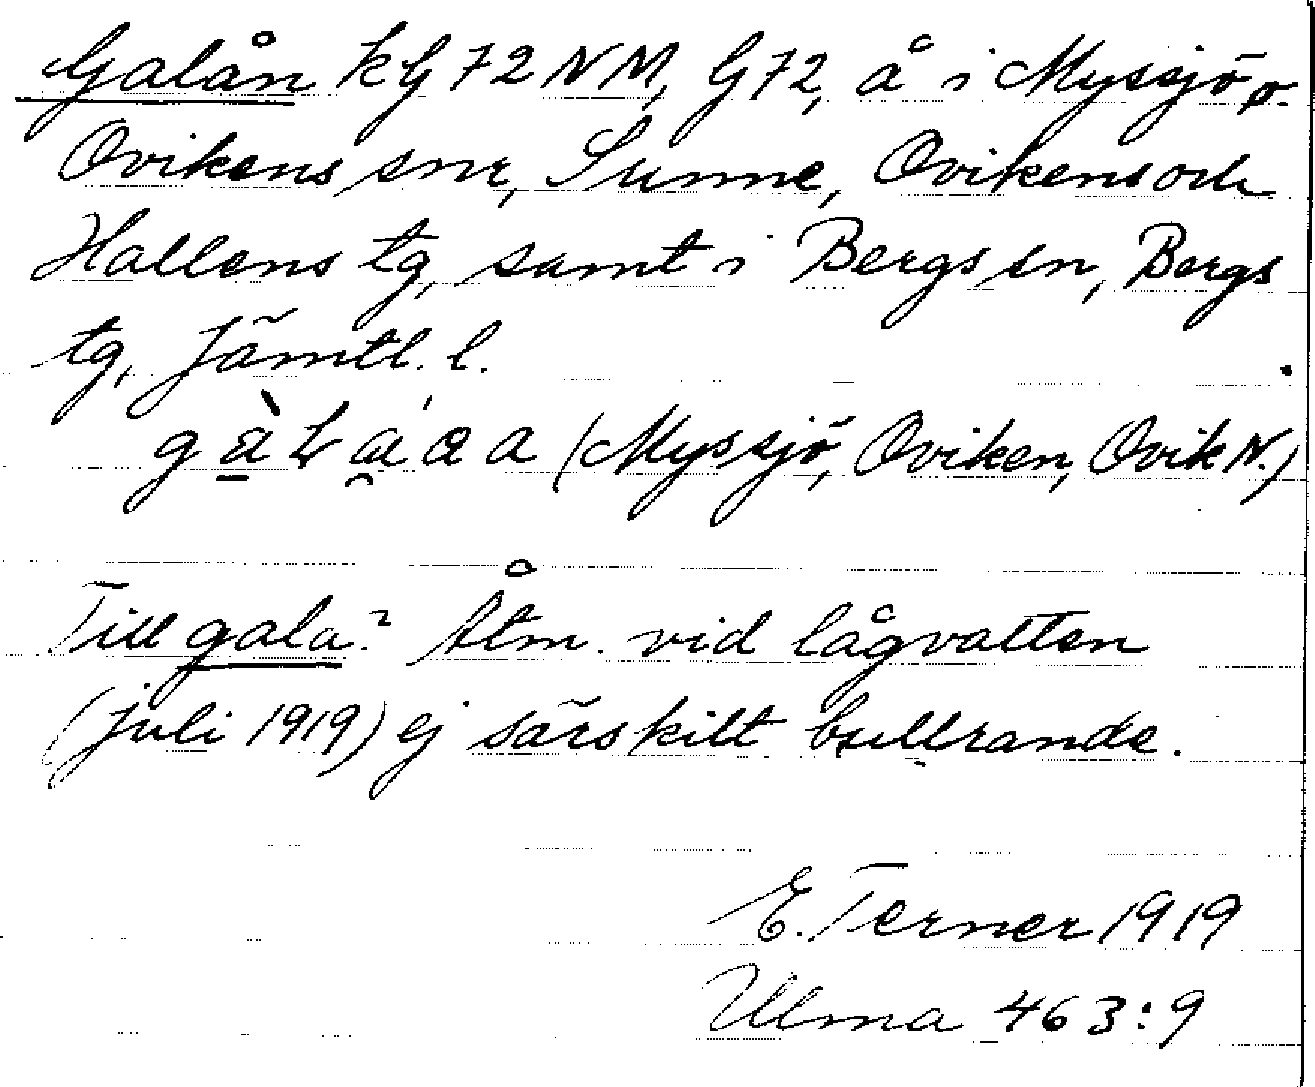 Galån kG 72 NM, G72, å i Myssjö o.
Ovikens snr, Sunne, Ovikens och
Hallens tg, samt i Bergs sn, Bergs
tg, Jämtl. l.
(Myssjö, Oviken, Ovik N.)
Till gala? Åtm. vid lågvatten
(juli 1919) ej särskilt bullrande.
E. Terner 1919
Ulma 463:9